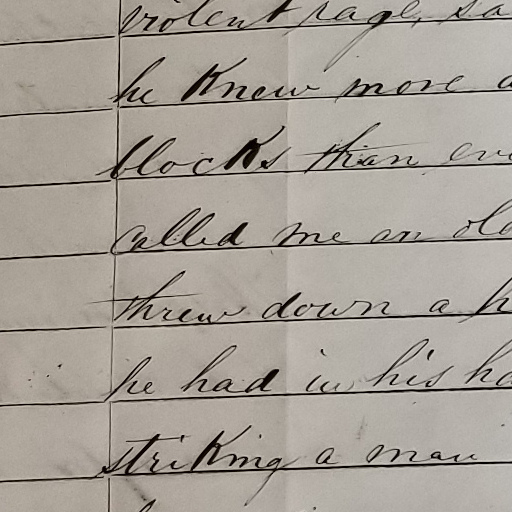 violent rage, sa
he Knew more a
blocks than eve
called me an old
threw down a h
he had in his ha
striking a man